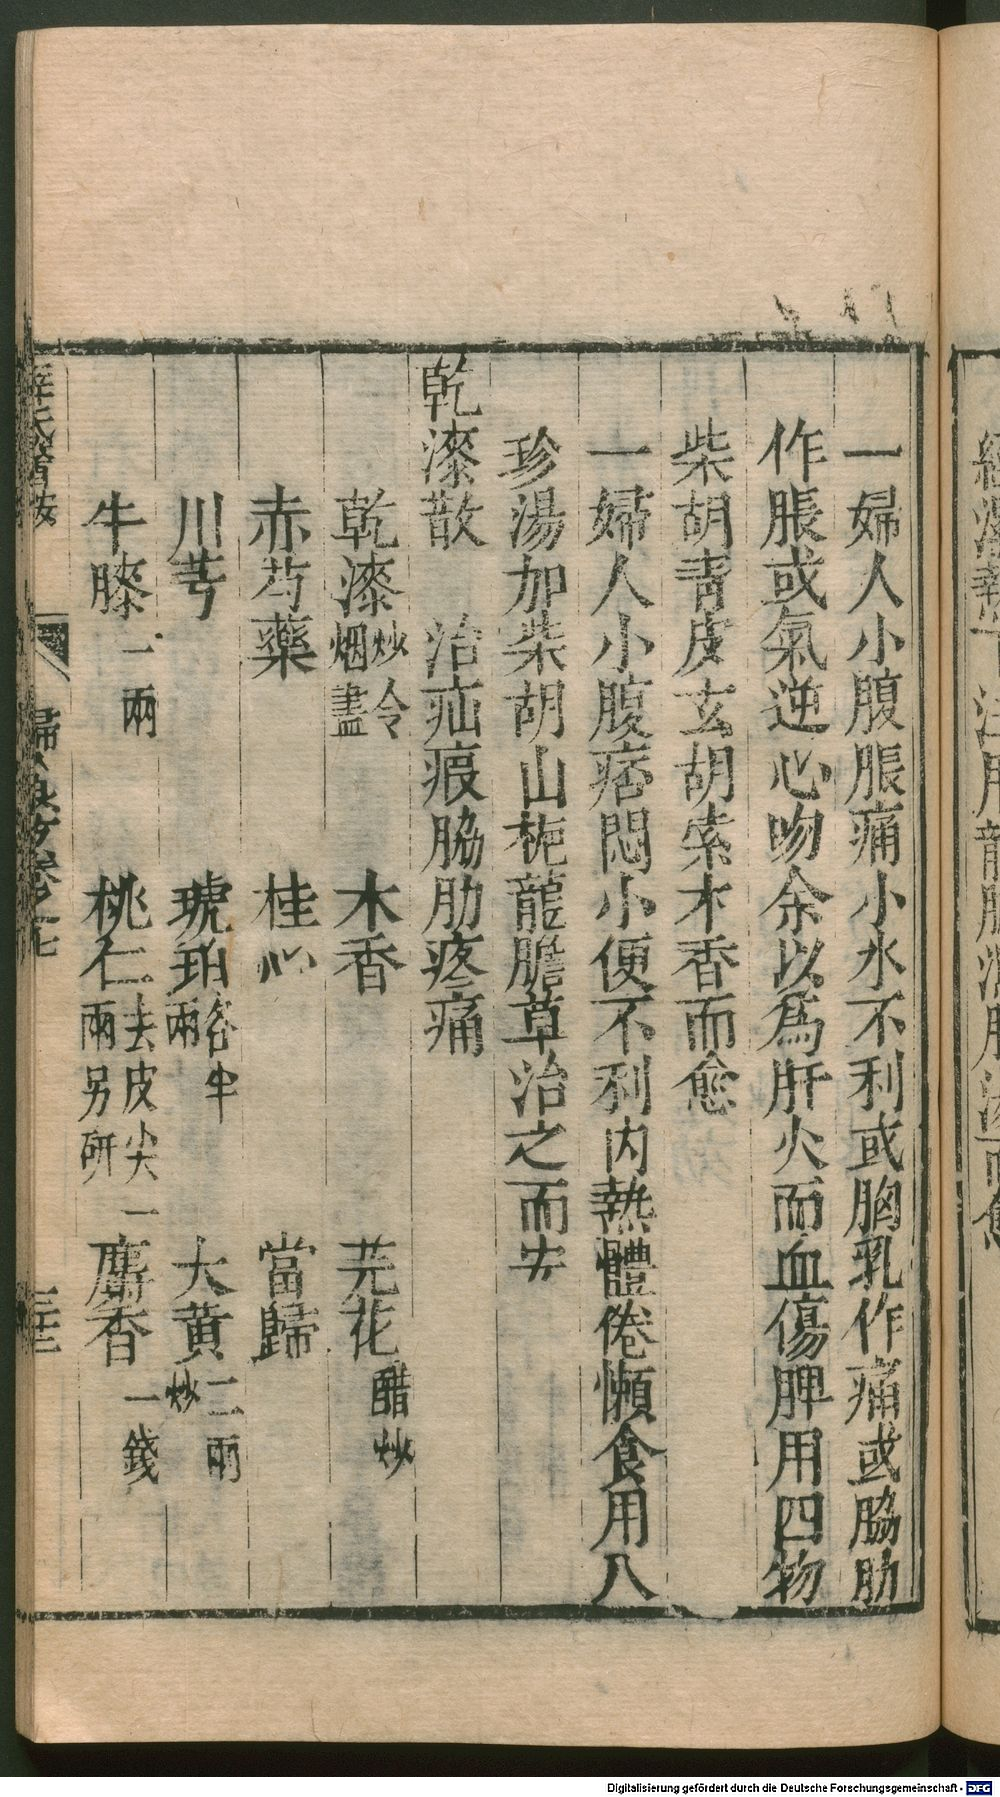 一婦人小腹脹痛小水不利或胸乳作痛或脇肋
作脹或氣逆心吻余以爲肝火而血傷脾用四物
柴胡青皮玄胡索木香而愈
一婦人小腹痞悶小便不利内熱體倦懶食用八
珍湯加柴胡山梔龍膽草治之而安
乾漆散　治疝瘕脇肋疼痛
乾漆炒令烟盡　木香　芫花醋炒
赤芍藥　桂心　當歸
川芎　琥珀各半兩　大黄二兩炒
牛膝一兩　桃仁去皮尖一兩另研　麝香一錢
薛氏醫按　婦人良方卷之七
Digitalisierung gefördert durch die Deutsche Forschungsgemeinschaft - DFG